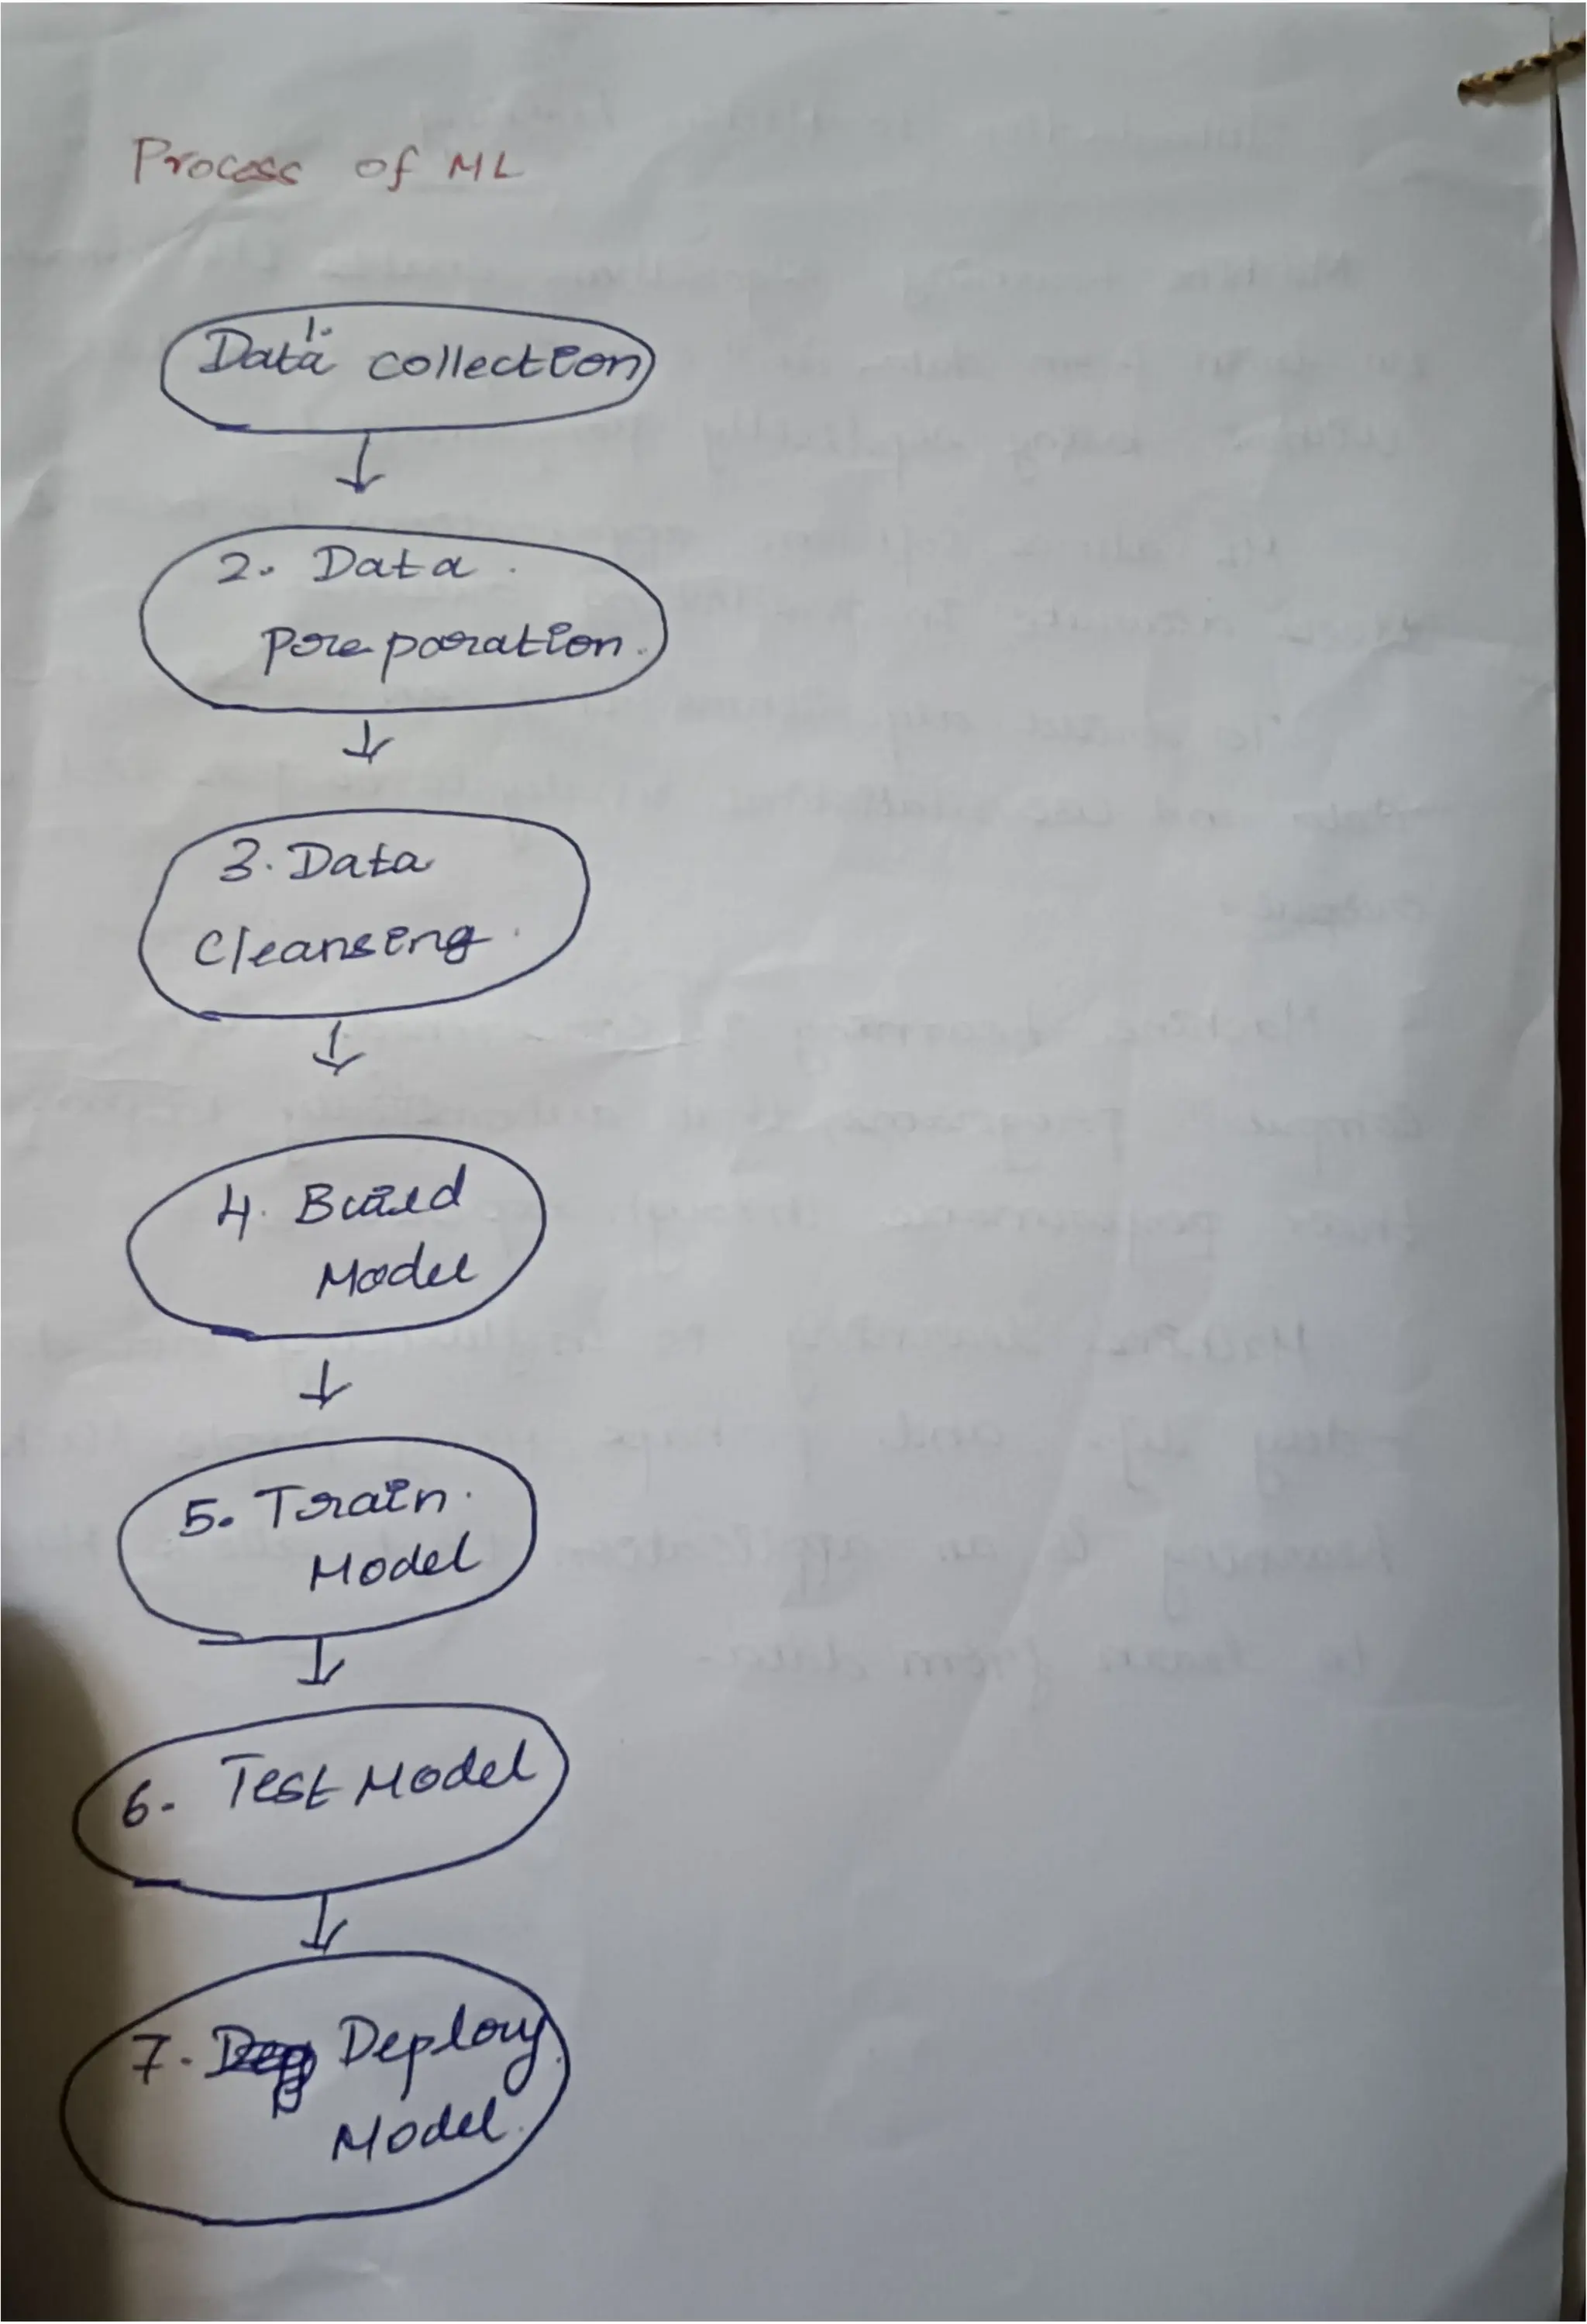 Process of ML
1.
Data collection
2. Data
preparation
3. Data
Cleansing
4. Build
Model
5. Train
Model
6. Test Model
7. Deploy
Model